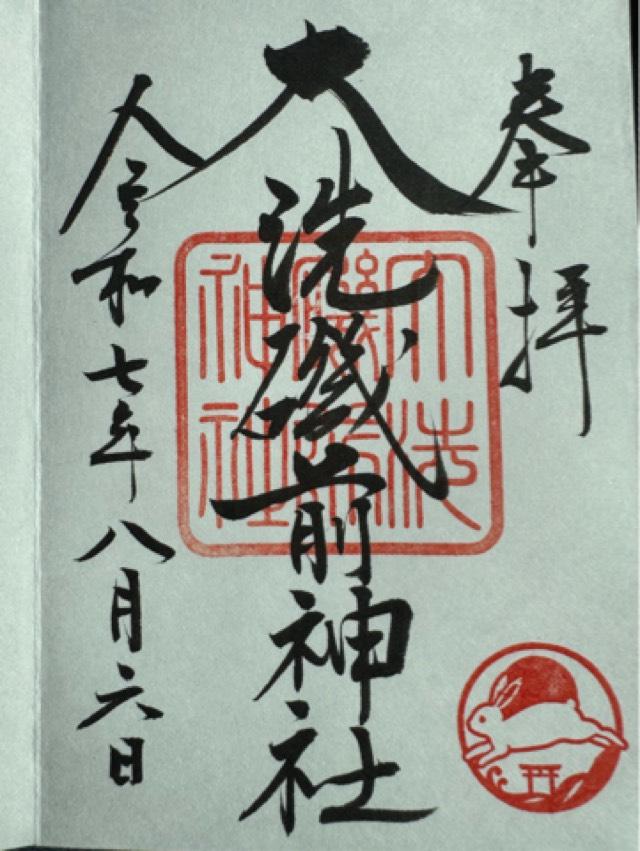 奉拝
大洗磯前神社
令和七年八月六日
大洗
磯前
神社